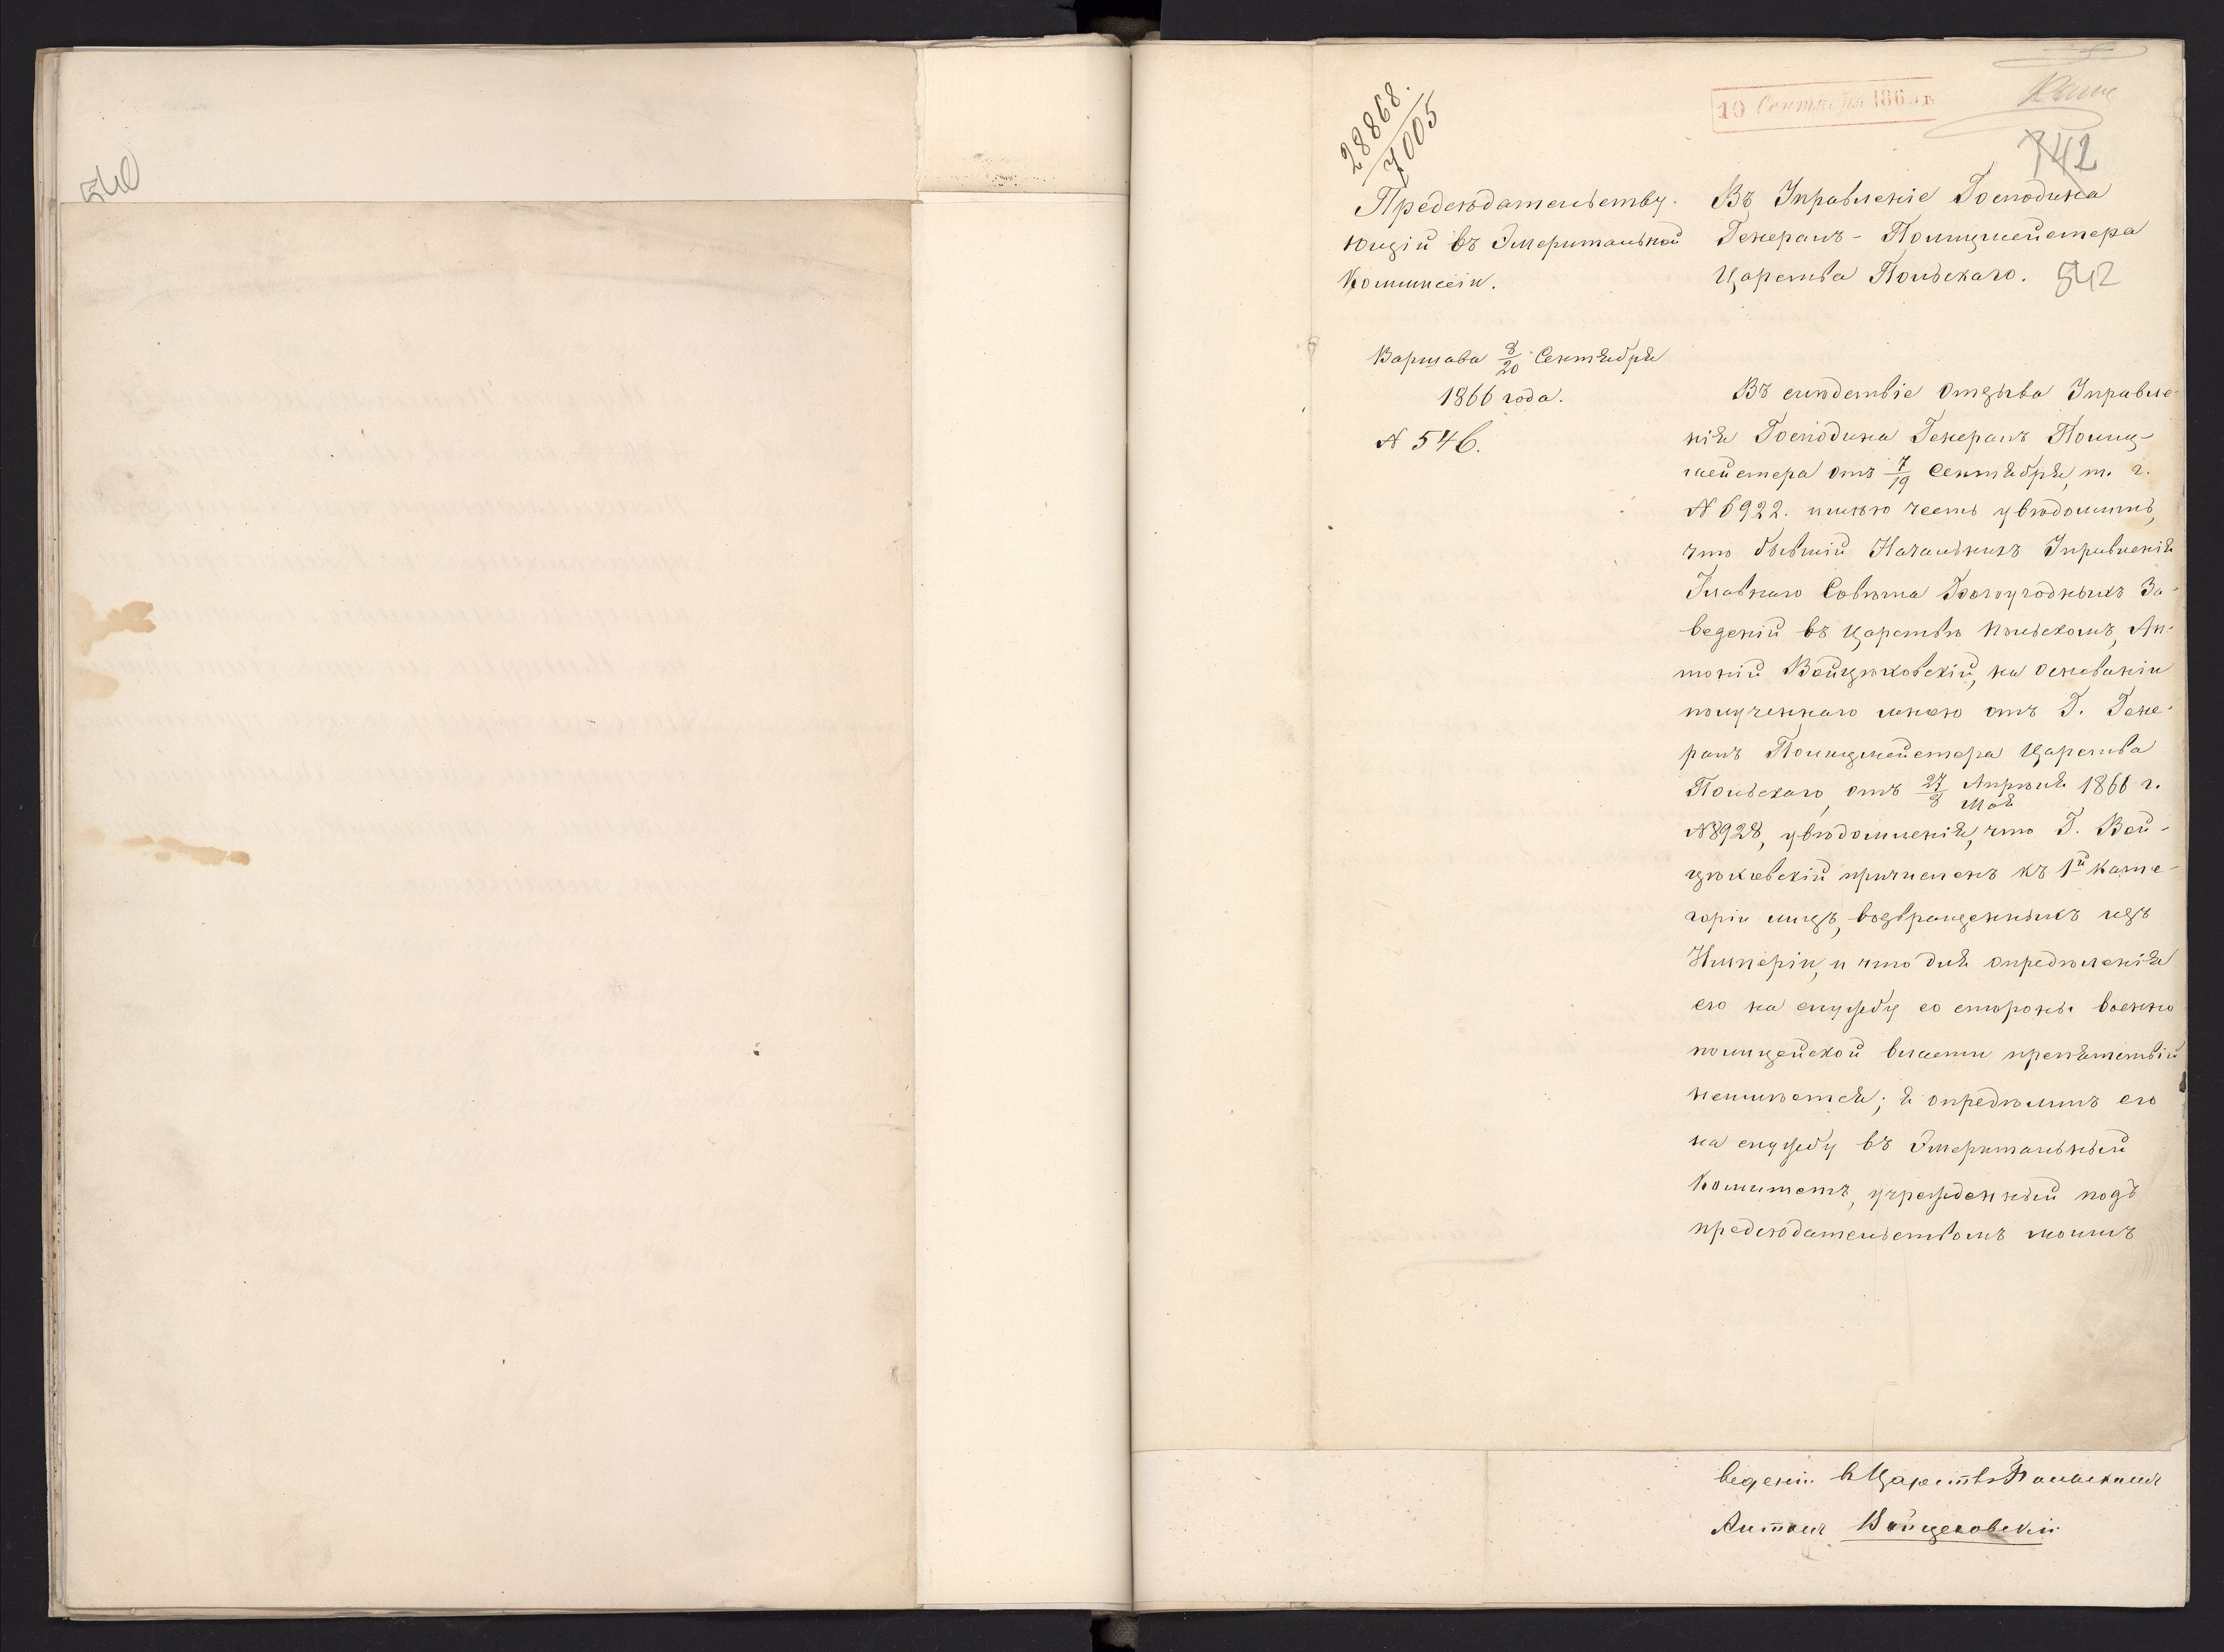 540
28868.
7005
10 Сентября 1866 г.
742
Предсѣдательству-
ющій въ Эмеритальной
Коммиссіи.
Варшава 8/20 Сентября
1866 года.
№ 546.
Въ Управленіе Господина
Генералъ-Полицмейстера
Царства Польскаго.
542
Въ слѣдствіе отзыва Управле-
нія Господина Генералъ Полиц-
мейстера отъ 7/19 Сентября, т. г.
№ 6922. имѣю честь увѣдомить,
что бывшій Начальникъ Управленія
Главнаго Совѣта Богоугодныхъ За-
веденій въ Царствѣ Польскомъ, Ан-
тоній Войцѣховскій, на основаніи
полученнаго мною отъ Г. Гене-
ралъ Полицмейстера Царства
Польскаго, отъ 27 Апрѣля / 8 Мая 1866 г.
№ 8928, увѣдомленія, что Г. Вой-
цѣховскій причисленъ къ 1й кате-
горіи лицъ, возвращенныхъ изъ
Имперіи, и что для опредѣленія
его на службу со стороны военно
полицейской власти препятствій
неимѣется; я опредѣлилъ его
на службу въ Эмеритальный
Комитетъ, учрежденный подъ
предсѣдательствомъ моимъ
веденіи в Царствѣ Польскомъ
Антонъ Войцеховскій